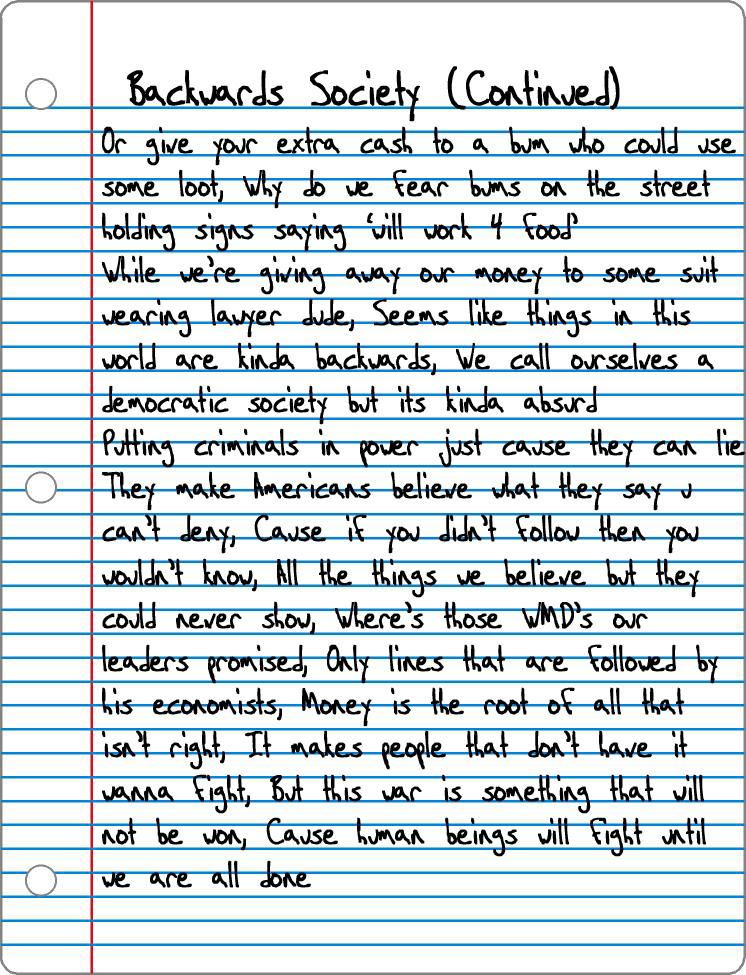 Backwards Society (Continued)
Or give your extra cash to a bum who could use
some loot, Why do we fear bums on the street
holding signs saying 'will work 4 food'
While we're giving away our money to some suit
wearing lawyer dude, Seems like things in this
world are kinda backwards, We call ourselves a
democratic society but its kinda absurd
Putting criminals in power just cause they can lie
They make Americans believe what they say u
can't deny, Cause if you didn't follow then you
wouldn't know, All the things we believe but they
could never show, Where's those WMD's our
leaders promised, Only lines that are followed by
his economists, Money is the root of all that
isn't right, It makes people that don't have it
wanna fight, But this war is something that will
not be won, Cause human beings will fight until
we are all done